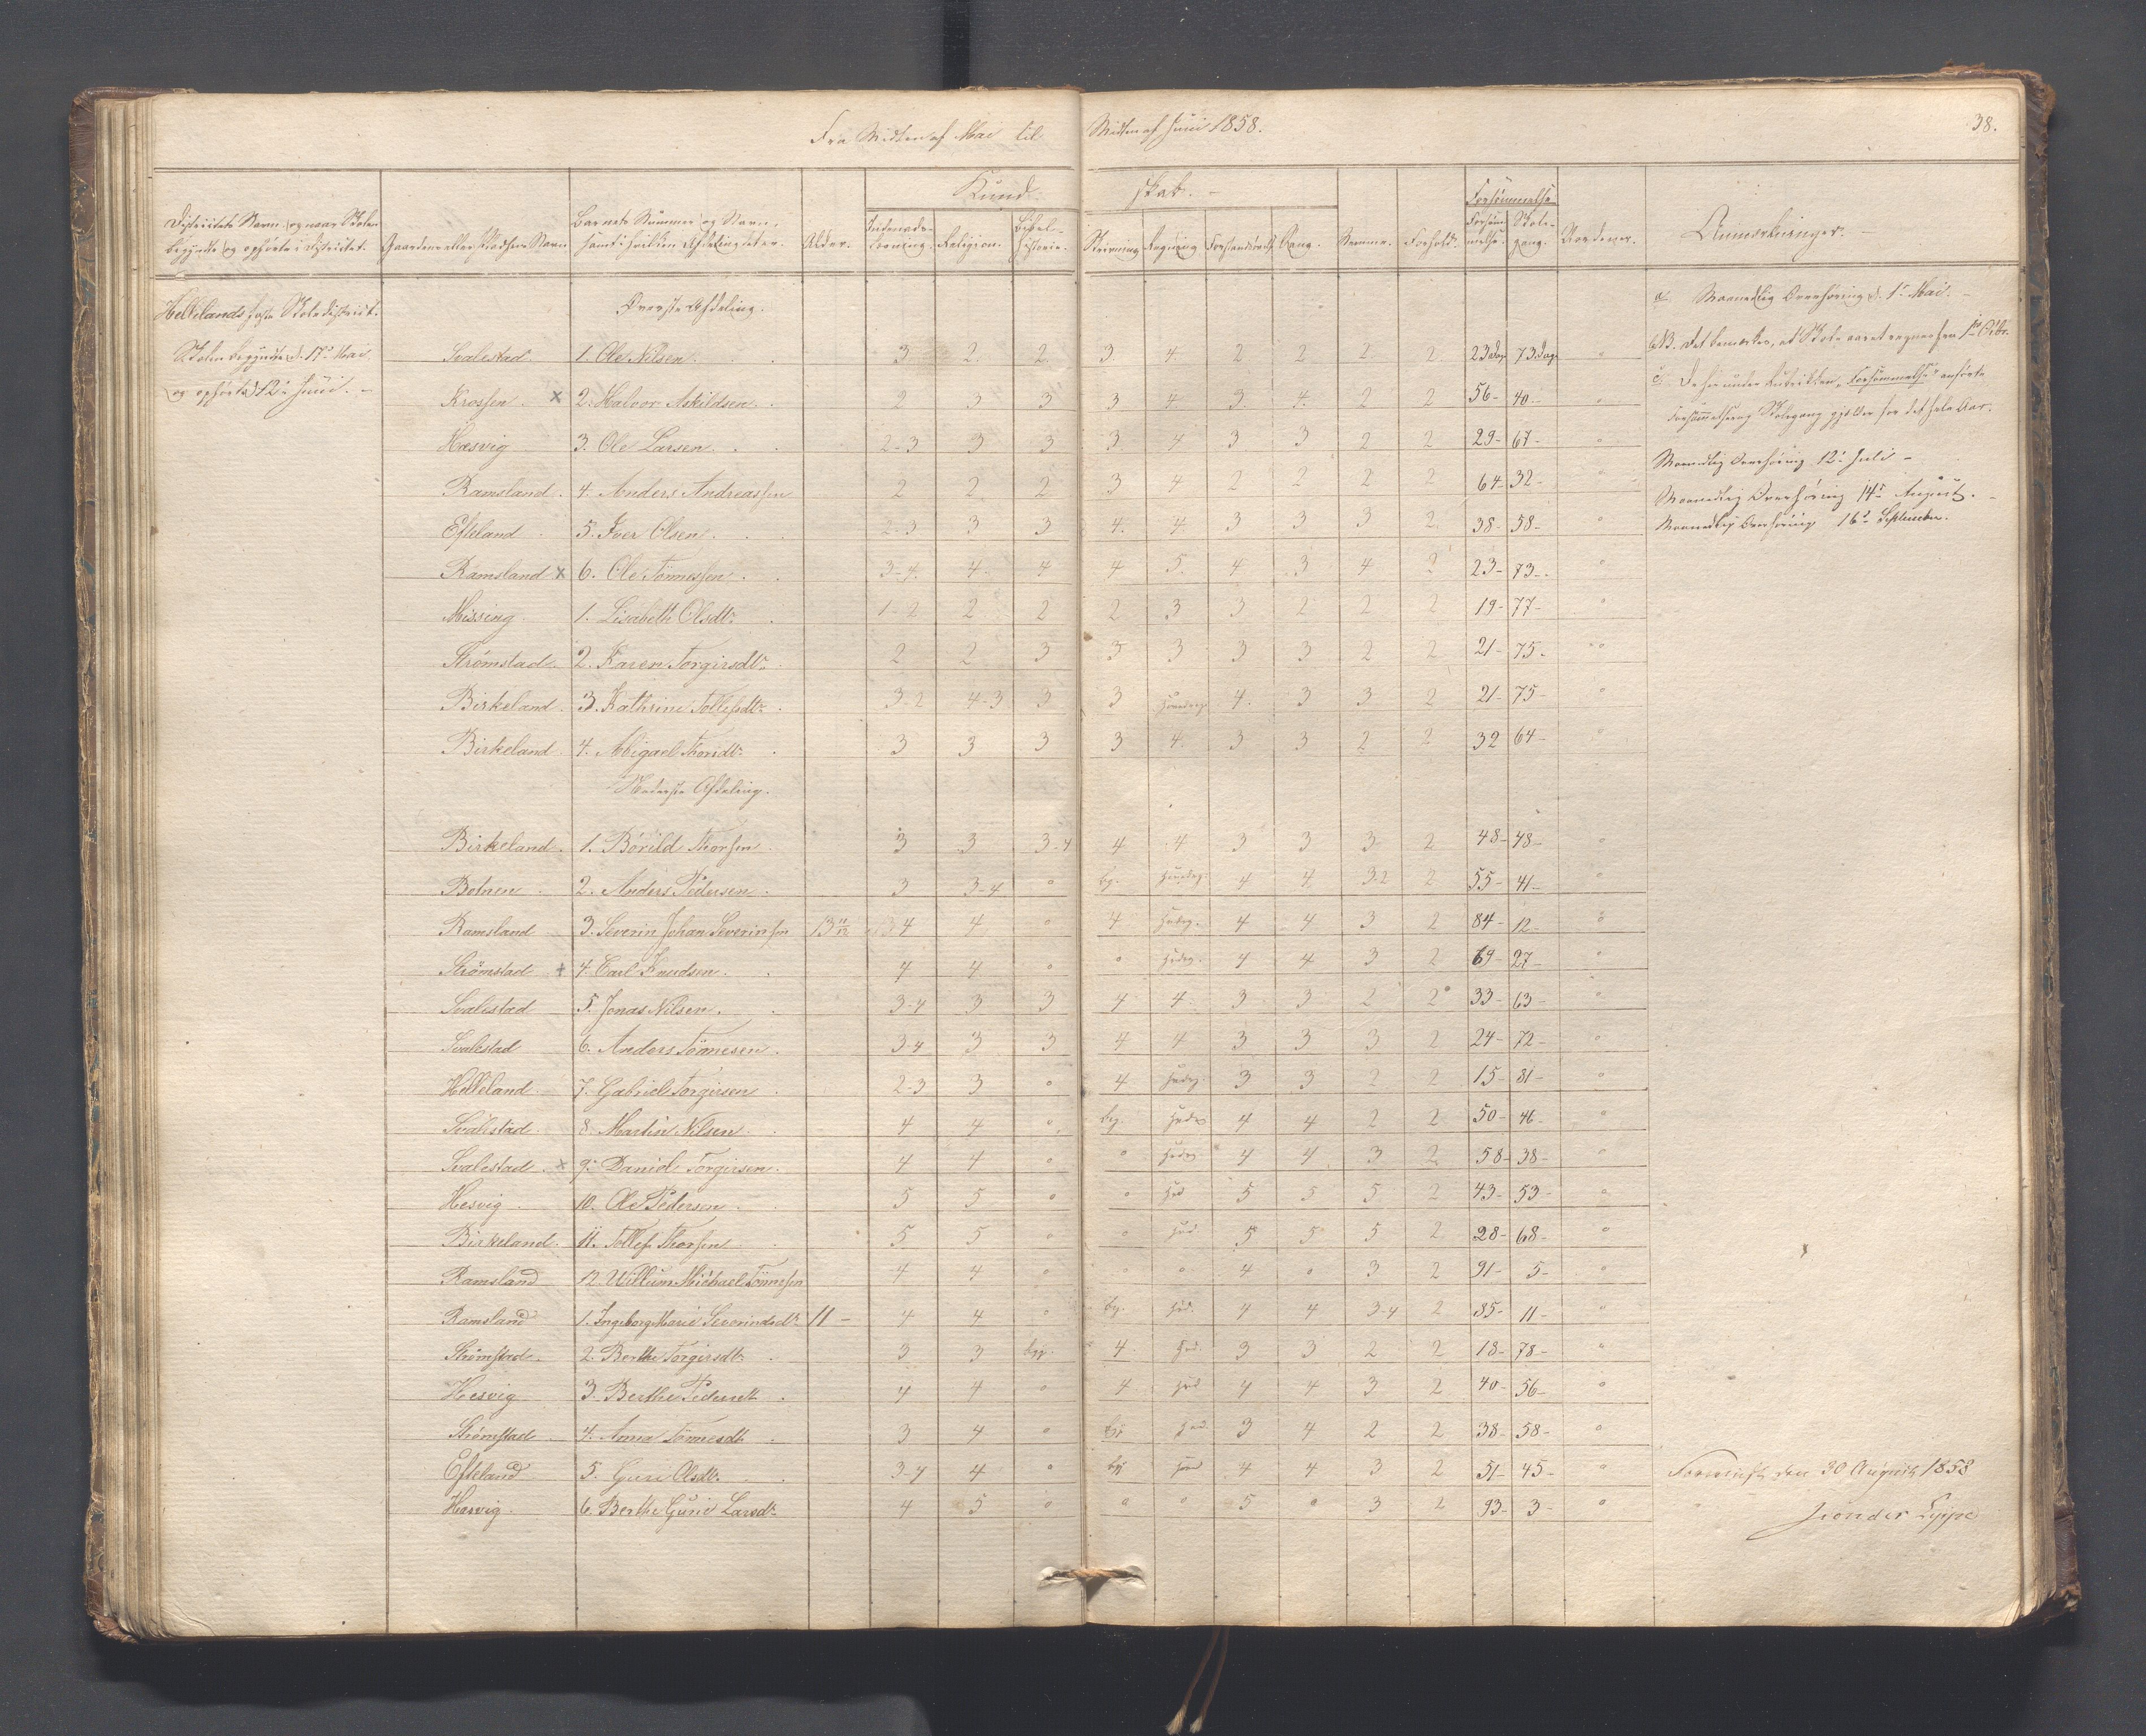 38.
Fra Midten af Mai til Midten af Juni 1858.
Kund- skab. -
Districtets Navn, og naar Skolen begyndte og ophørte i Districtet.
Gaardens eller Pladsens Navn
Barnets Nummer og Navn, samt i hvilken Afdeling det er.
Alder.
Indenads-Læsning.
Religion.
Bibel-historie.
Skrivning
Regning
Forstandsøv.
Sang.
Nemme.
Forhold.
Forsømmelse
Forsøm-melse.
Skole-gang.
Anmærkninger. -
Hellelands faste Skoledistrict.
Skolen begyndte d. 17de Mai
og ophørte d. 12te Juni. -
Øverste Afdeling.
Svalestad. 1. Ole Nilsen. 3 2 2 3 4 2 2 2 2 23 Dage 73 Dage "
Krossen. x 2. Halvor Askildsen. 2 3 3 3 4 3 4 2 2 56- 40- "
Hæsvig 3. Ole Larsen. 2-3 3 3 3 4 3 3 2 2 29- 67- "
Ramsland. 4. Anders Andreassen 2 2 2 3 4 2 2 2 2 64- 32- "
Efteland 5. Iver Olsen. 2-3 3 3 4 4 3 3 3 2 38- 58- "
Ramsland x 6. Ole Tønnessen. 3-4 4 4 4 5 4 3 4 2 23- 73- "
Missing 1. Lisabeth Olsdtr 1-2 2 2 2 3 3 2 2 2 19- 77- "
Strømstad. 2. Karen Torgirsdtr 2 2 3 3 3 3 3 2 2 21- 75- "
Birkeland. 3. Kathrine Tollefsdtr 3-2 4-3 3 3 4 3 3 2 21- 75- "
Birkeland. 4. Abigael Thorsdtr 3 3 3 3 4 3 3 2 2 32 64- "
Nederste Afdeling.
Birkeland. 1. Børild Thorsen 3 3 3-4 4 4 3 3 3 2 48- 48- "
Botnen. 2. Anders Pedersen. 3 3-4 " bg. 4 4 3-2 2 55- 41- "
Ramsland 3. Severin Johan Severinsen 13 11/12 3-4 4 " 4 4 4 3 2 84- 12- "
Strömstad + 4. Carl Knudsen. 4 4 " " 4 4 3 2 69- 27- "
Svalestad 5. Jonas Nilsen. 3-4 3 3 4 4 3 3 2 2 33- 63- "
Svalestad 6. Anders Tönnesen. 3-4 3 3 4 4 3 3 3 2 24- 72- "
Helleland. 7. Gabriel Torgirsen 2-3 3 " 4 3 3 2 2 15- 81- "
Svalestad. 8. Martin Nilsen. 4 4 " bg. 4 4 2 2 50- 46- "
Svalestad. x 9. Daniel Torgirsen. 4 4 " " 4 4 3 2 58- 38- "
Hesvig. 10. Ole Pedersen. 5 5 " " 5 5 5 2 43- 53- "
Birkeland. 11. Tollef Thorsen 5 5 " " 5 5 5 2 28- 68- "
Ramsland 12. Willum Michael Tönnessen 4 4 " " " 4 " 3 2 91- 5- "
Ramsland 1. Ingeborg Marie Severinsdtr 11 - 4 4 " bg. 4 4 3-4 2 85- 11- "
Strömstad. 2. Berthe Torgirsdtr 3 3 bg. 4 3 3 2 2 18- 78- "
Hesvig 3. Berthe Pedersdtr 4 4 " 4 4 4 3 2 40- 56- "
Strömstad 4. Anna Tönnesdtr 3 4 " bg 3 4 2 2 38- 58- "
Efteland 5. Guri Olsdtr 3-4 4 " bg 4 4 3 2 51- 45- "
Hæsvig. 6. Berthe Gurie Larsdtr 4 5 " " " 5 " 3 2 93- 3- "
a. Maanedlig Overhøring d. 1ste Mai. -
NB. Det bemærkes, at Skoleaaret regnes fra 1ste
c. De her under Rubrikken "Forsømmelse" anførte
Forsømmelser og Skolegang gjælder for det hele Aar.
Maanedlig Overhøring 12te Juli -
Maanedlig Overhøring 14de August. -
Maanedlig Overhøring 16de September.
den 30 August 1858